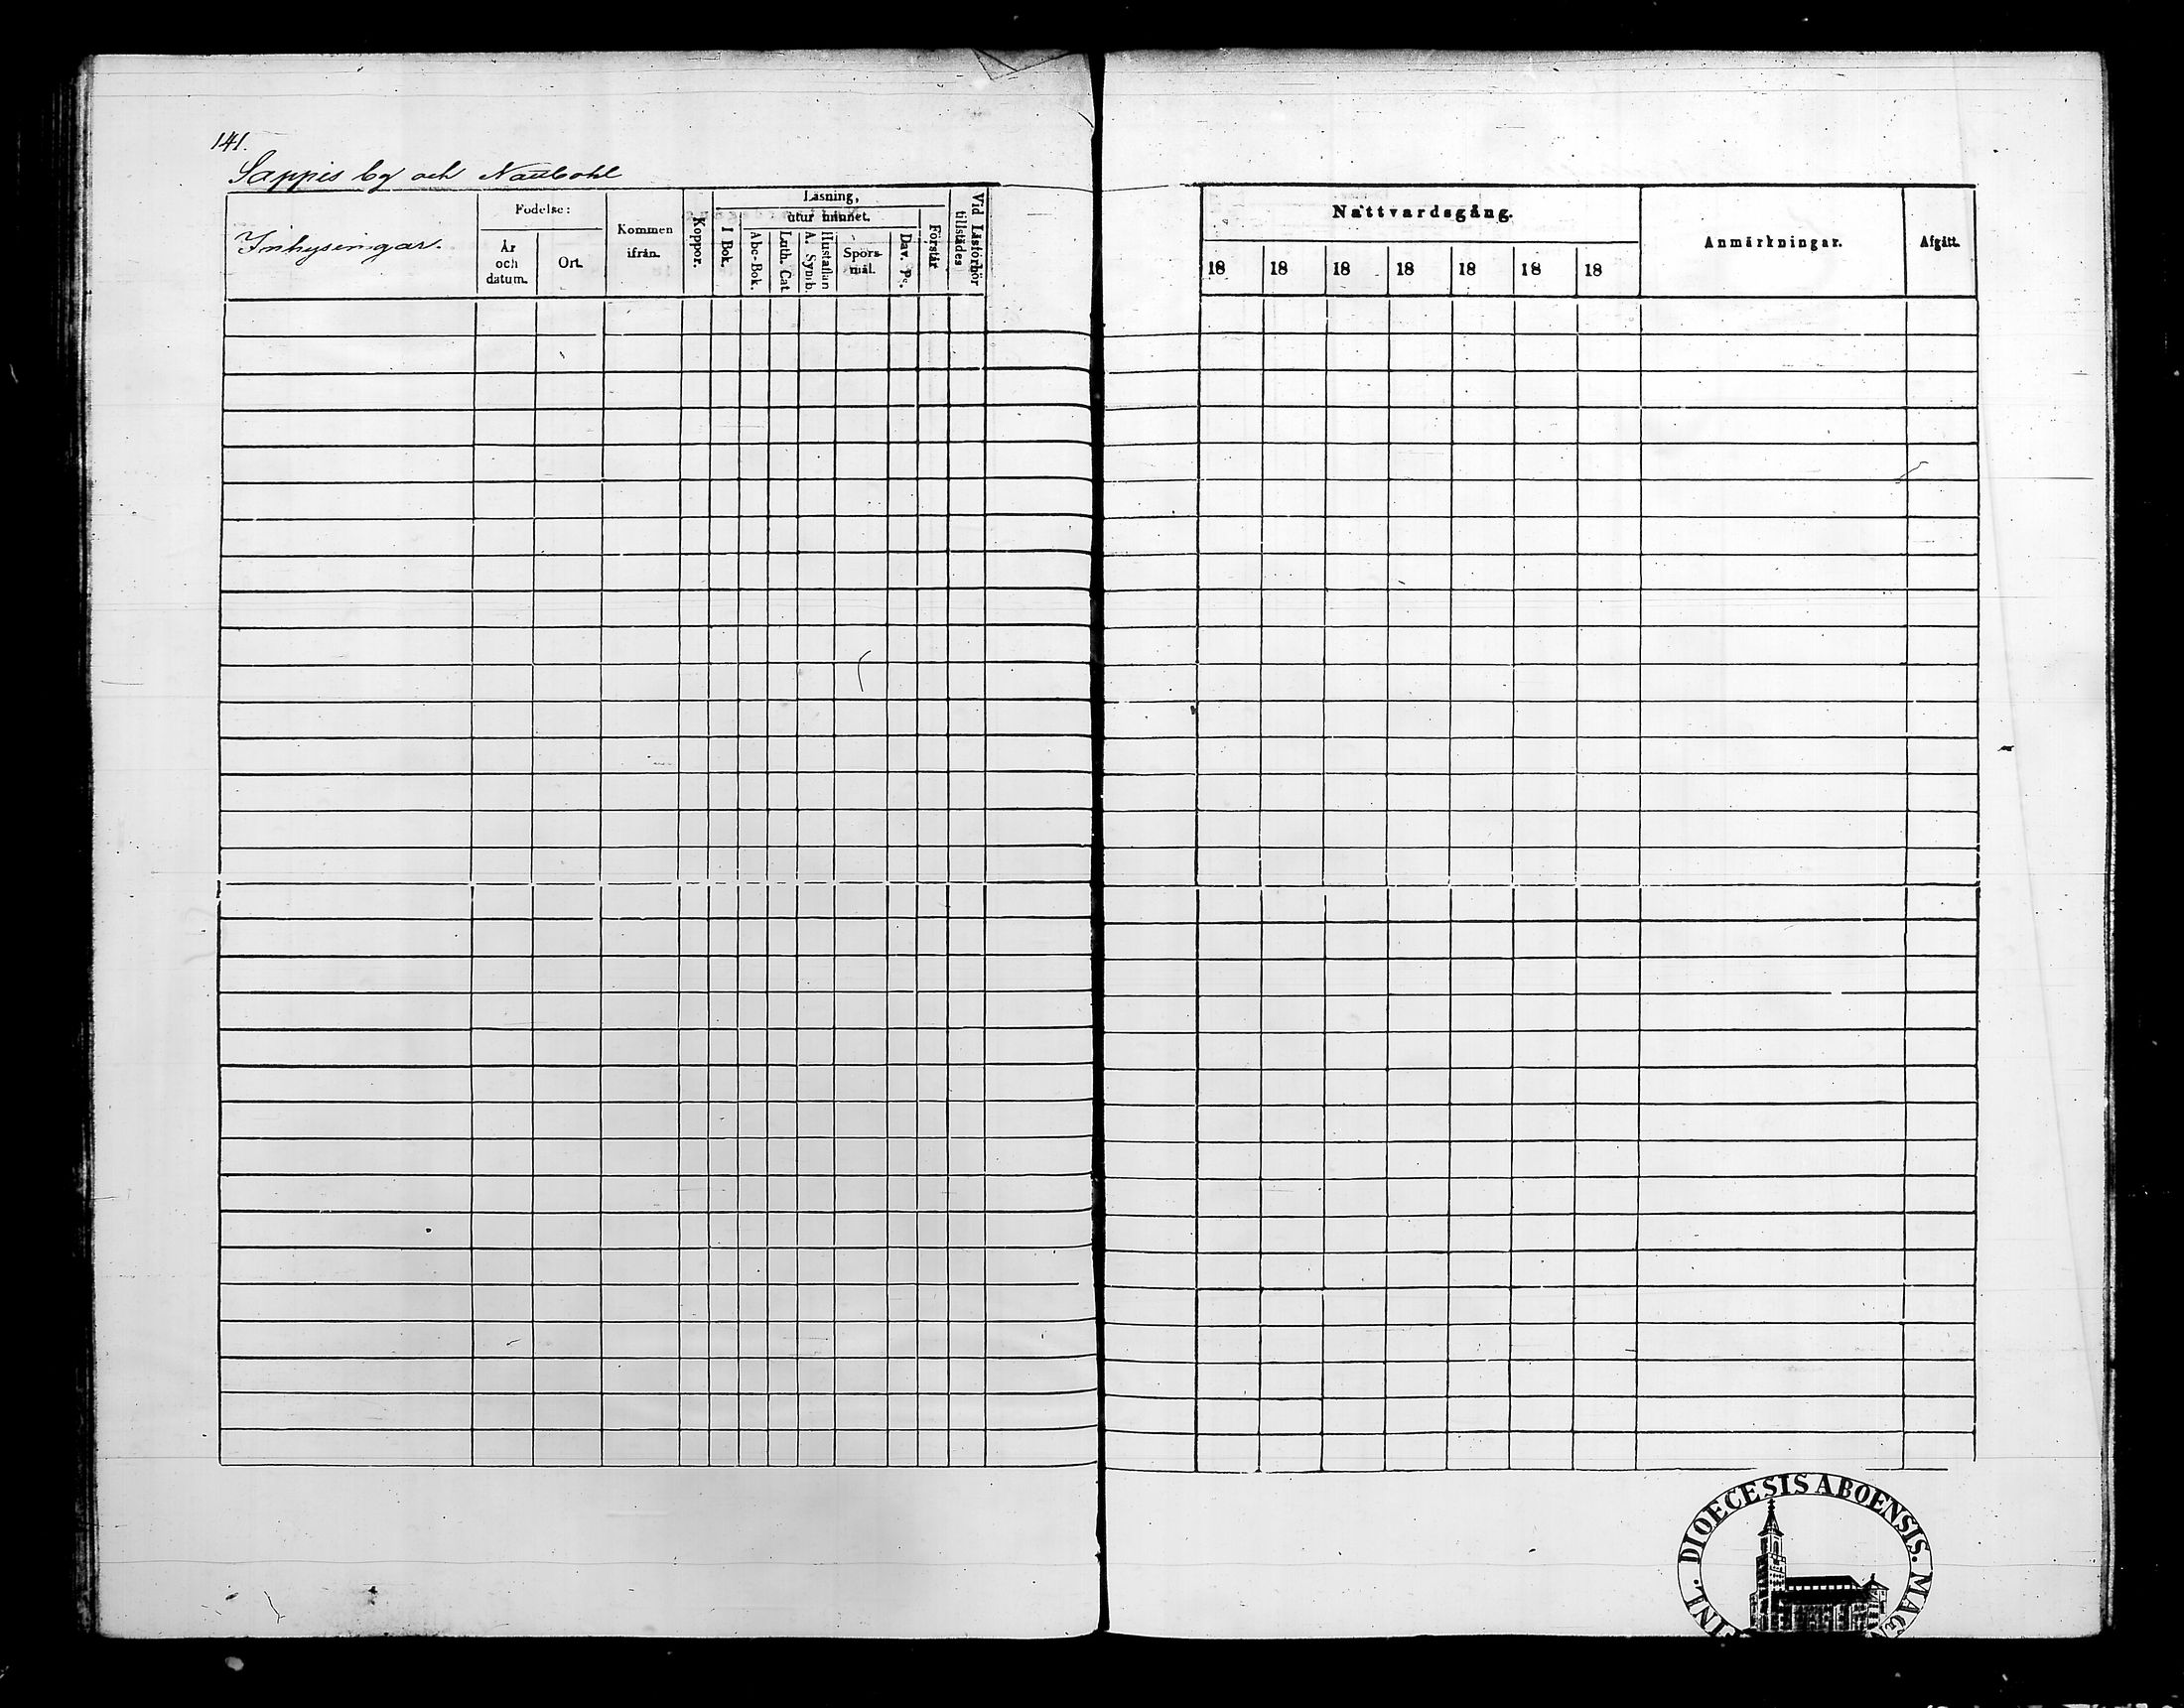 141.
Sappis by och Naubohl
Inhysingar.
Fodelse:
År
och
datum.
Ort.
Kommen
ifrån.
Koppor.
Läsning,
utur minnet.
I Bok.
Abc-Bok.
Luth. Cat.
Hustaflan
A. Symb.
Spörs-
mål.
Dav. Ps.
Förstår
Vid Läsförhör
tillstädes
Nattvardsgång.
18 18 18 18 18 18 18
Anmärkningar.
Afgått.
DIOECESIS ABOENSIS.